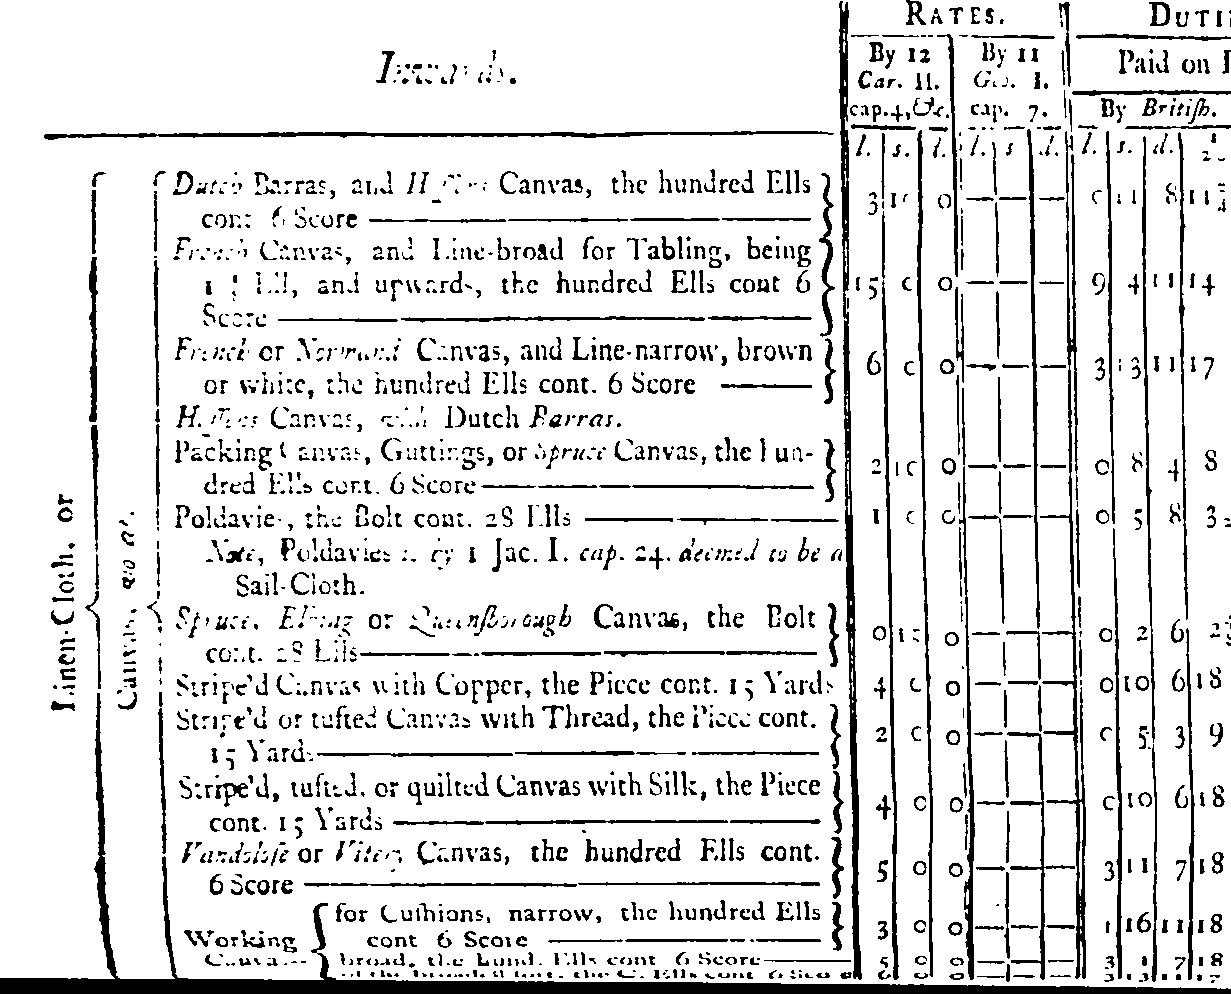 RATES.
Inwards.
By 12 Car. II. cap. 4, &c.
By 11 Geo. I. cap. 7.
Paid on
By Britiſh.
l. s. d. l. s. d. l. s. d.
Dutch Barras, and Canvas, the hundred Ells
cont 6 Score 3 10 0 — — — 0 11 8 11
French Canvas, and Line-broad for Tabling, being
1 Ell, and upwards, the hundred Ells cont 6 15 0 0 — — — 9 4 11 14
Score
French or Normand Canvas, and Line-narrow, brown
or white, the hundred Ells cont. 6 Score 6 0 0 — — — 3 13 11 17
Canvas, with Dutch Barras.
Packing Canvas, Guttings, or Spruce Canvas, the hun-
dred Ells cont. 6 Score 2 10 0 — — — 0 8 4 8
Poldavies, the Bolt cont. 28 Ells 1 0 0 — — — 0 5 8 3
Note, Poldavies by 1 Jac. I. cap. 24. deemed to be a
Sail-Cloth.
Linen-Cloth, or
Canvas,
Spruce, Elbing or Queenſborough Canvas, the Bolt
cont. 28 Ells 0 0 — — — 0 2 6
Stripe'd Canvas with Copper, the Piece cont. 15 Yards 4 0 0 — — — 0 10 6 18
Stripe'd or tufted Canvas with Thread, the Piece cont.
15 Yards 2 0 0 — — — 0 5 3 9
Stripe'd, tufted, or quilted Canvas with Silk, the Piece
cont. 15 Yards 4 0 0 — — — 0 10 6 18
Vandoloſe or Canvas, the hundred Ells cont.
6 Score 5 0 0 — — — 3 11 7 18
Working Canvas
for Cuſhions, narrow, the hundred Ells
cont 6 Score 3 0 0 — — — 1 16 11 18
broad, the Hund. Ells cont 6 Score 5 0 0 — — — 3 1 7 18